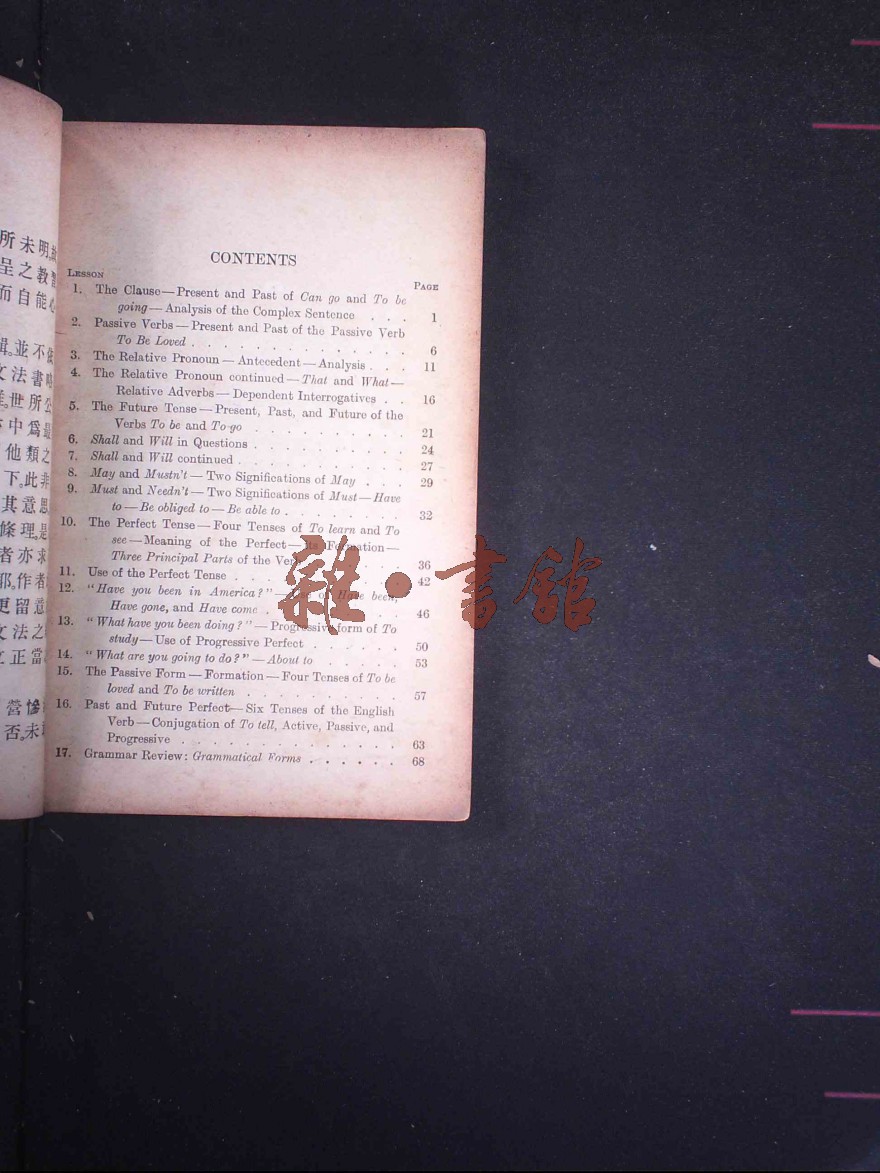 CONTENTS
LESSON
PAGE
1. The Clause—Present and Past of Can go and To be
going—Analysis of the Complex Sentence . . . 1
2. Passive Verbs—Present and Past of the Passive Verb
To Be Loved . . . . . . . . . . . . . 6
3. The Relative Pronoun—Antecedent—Analysis . . . 11
4. The Relative Pronoun continued—That and What—
Relative Adverbs—Dependent Interrogatives . . 16
5. The Future Tense—Present, Past, and Future of the
Verbs To be and To go . . . . . . . . . 21
6. Shall and Will in Questions . . . . . . . . . 24
7. Shall and Will continued . . . . . . . . . . 27
8. May and Mustn't—Two Significations of May . . . 29
9. Must and Needn't—Two Significations of Must—Have
to—Be obliged to—Be able to . . . . . . . 32
10. The Perfect Tense—Four Tenses of To learn and To
see—Meaning of the Perfect—Its Formation—
Three Principal Parts of the Verb . . . . . 36
11. Use of the Perfect Tense . . . . . . . . . . 42
12. "Have you been in America?"—Use of Have been,
Have gone, and Have come . . . . . . . . 46
13. "What have you been doing?"—Progressive form of To
study—Use of Progressive Perfect . . . . . . 50
14. "What are you going to do?"—About to . . . . . 53
15. The Passive Form—Formation—Four Tenses of To be
loved and To be written . . . . . . . . . 57
16. Past and Future Perfect—Six Tenses of the English
Verb—Conjugation of To tell, Active, Passive, and
Progressive . . . . . . . . . . . . . 63
17. Grammar Review: Grammatical Forms . . . . . . 68
所未明
呈之教
而自能
並不
文法書
世所公
中爲最
他類之
下。此非
其意思
條理。是
者亦求
耶。作者
更留意
文法之
正當
營慘
否。未
雜·書館